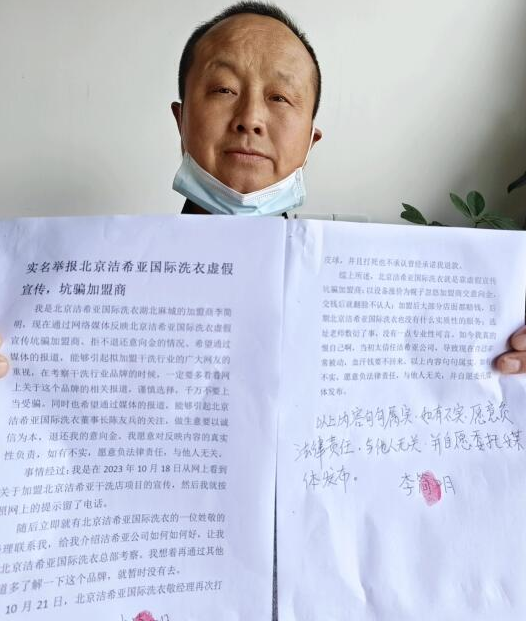 实名举报北京洁希亚国际洗衣虚假
宣传，坑骗加盟商
我是北京洁希亚国际洗衣湖北麻城的加盟商李简
明，现在通过网络媒体反映北京洁希亚国际洗衣虚假
宣传坑骗加盟商、拒不退还意向金的情况。希望通过
媒体的报道，能够引起拟加干洗行业的广大网友的
重视，在考察干洗行业品牌的时候，一定要多看看网
上关于这个品牌的相关报道，谨慎选择，千万不要上
当受骗。同时也希望通过媒体的报道，能够引起北京
洁希亚国际洗衣董事长陈友兵的关注，做生意要以诚
信为本，退还我的意向金。我愿意对反映内容的真实
性负责，如有不实，愿意负法律责任，与他人无关。
事情经过：我是在 2023 年 10 月 18 日从网上看到
关于加盟北京洁希亚干洗店项目的宣传，然后我就按
照网上的提示留了电话。
随后立即就有北京洁希亚国际洗衣的一位姓敬的
经理联系我，给我介绍洁希亚公司如何如何好，让我
北京洁希亚国际洗衣总部考察。我想着再通过其他
道多了解一下这个品牌，就暂时没有去。
10 月 21 日，北京洁希亚国际洗衣敬经理再次打
皮球，并且打死也不承认曾经承诺我退款。
综上所述，北京洁希亚国际洗衣就是靠虚假宣传
坑骗加盟商；以设备涨价为幌子忽悠加盟商交意向金，
交钱后就翻脸不认人；加盟后大部分店面都赔钱，后
期北京洁希亚国际洗衣也没有什么实质性的服务；选
址老师敷衍了事，没有一点专业性可言。如今我真的
恨自己啊，当初太信任洁希亚公司，导致现在
常被动，血汗钱要不回来。以上内容句句属实，如有
不实，愿意负法律责任，与他人无关，并自愿委托媒
体发布。
以上内容句句属实，如有不实，愿意负
法律责任，与他人无关，并自愿委托媒
体发布。
李简明